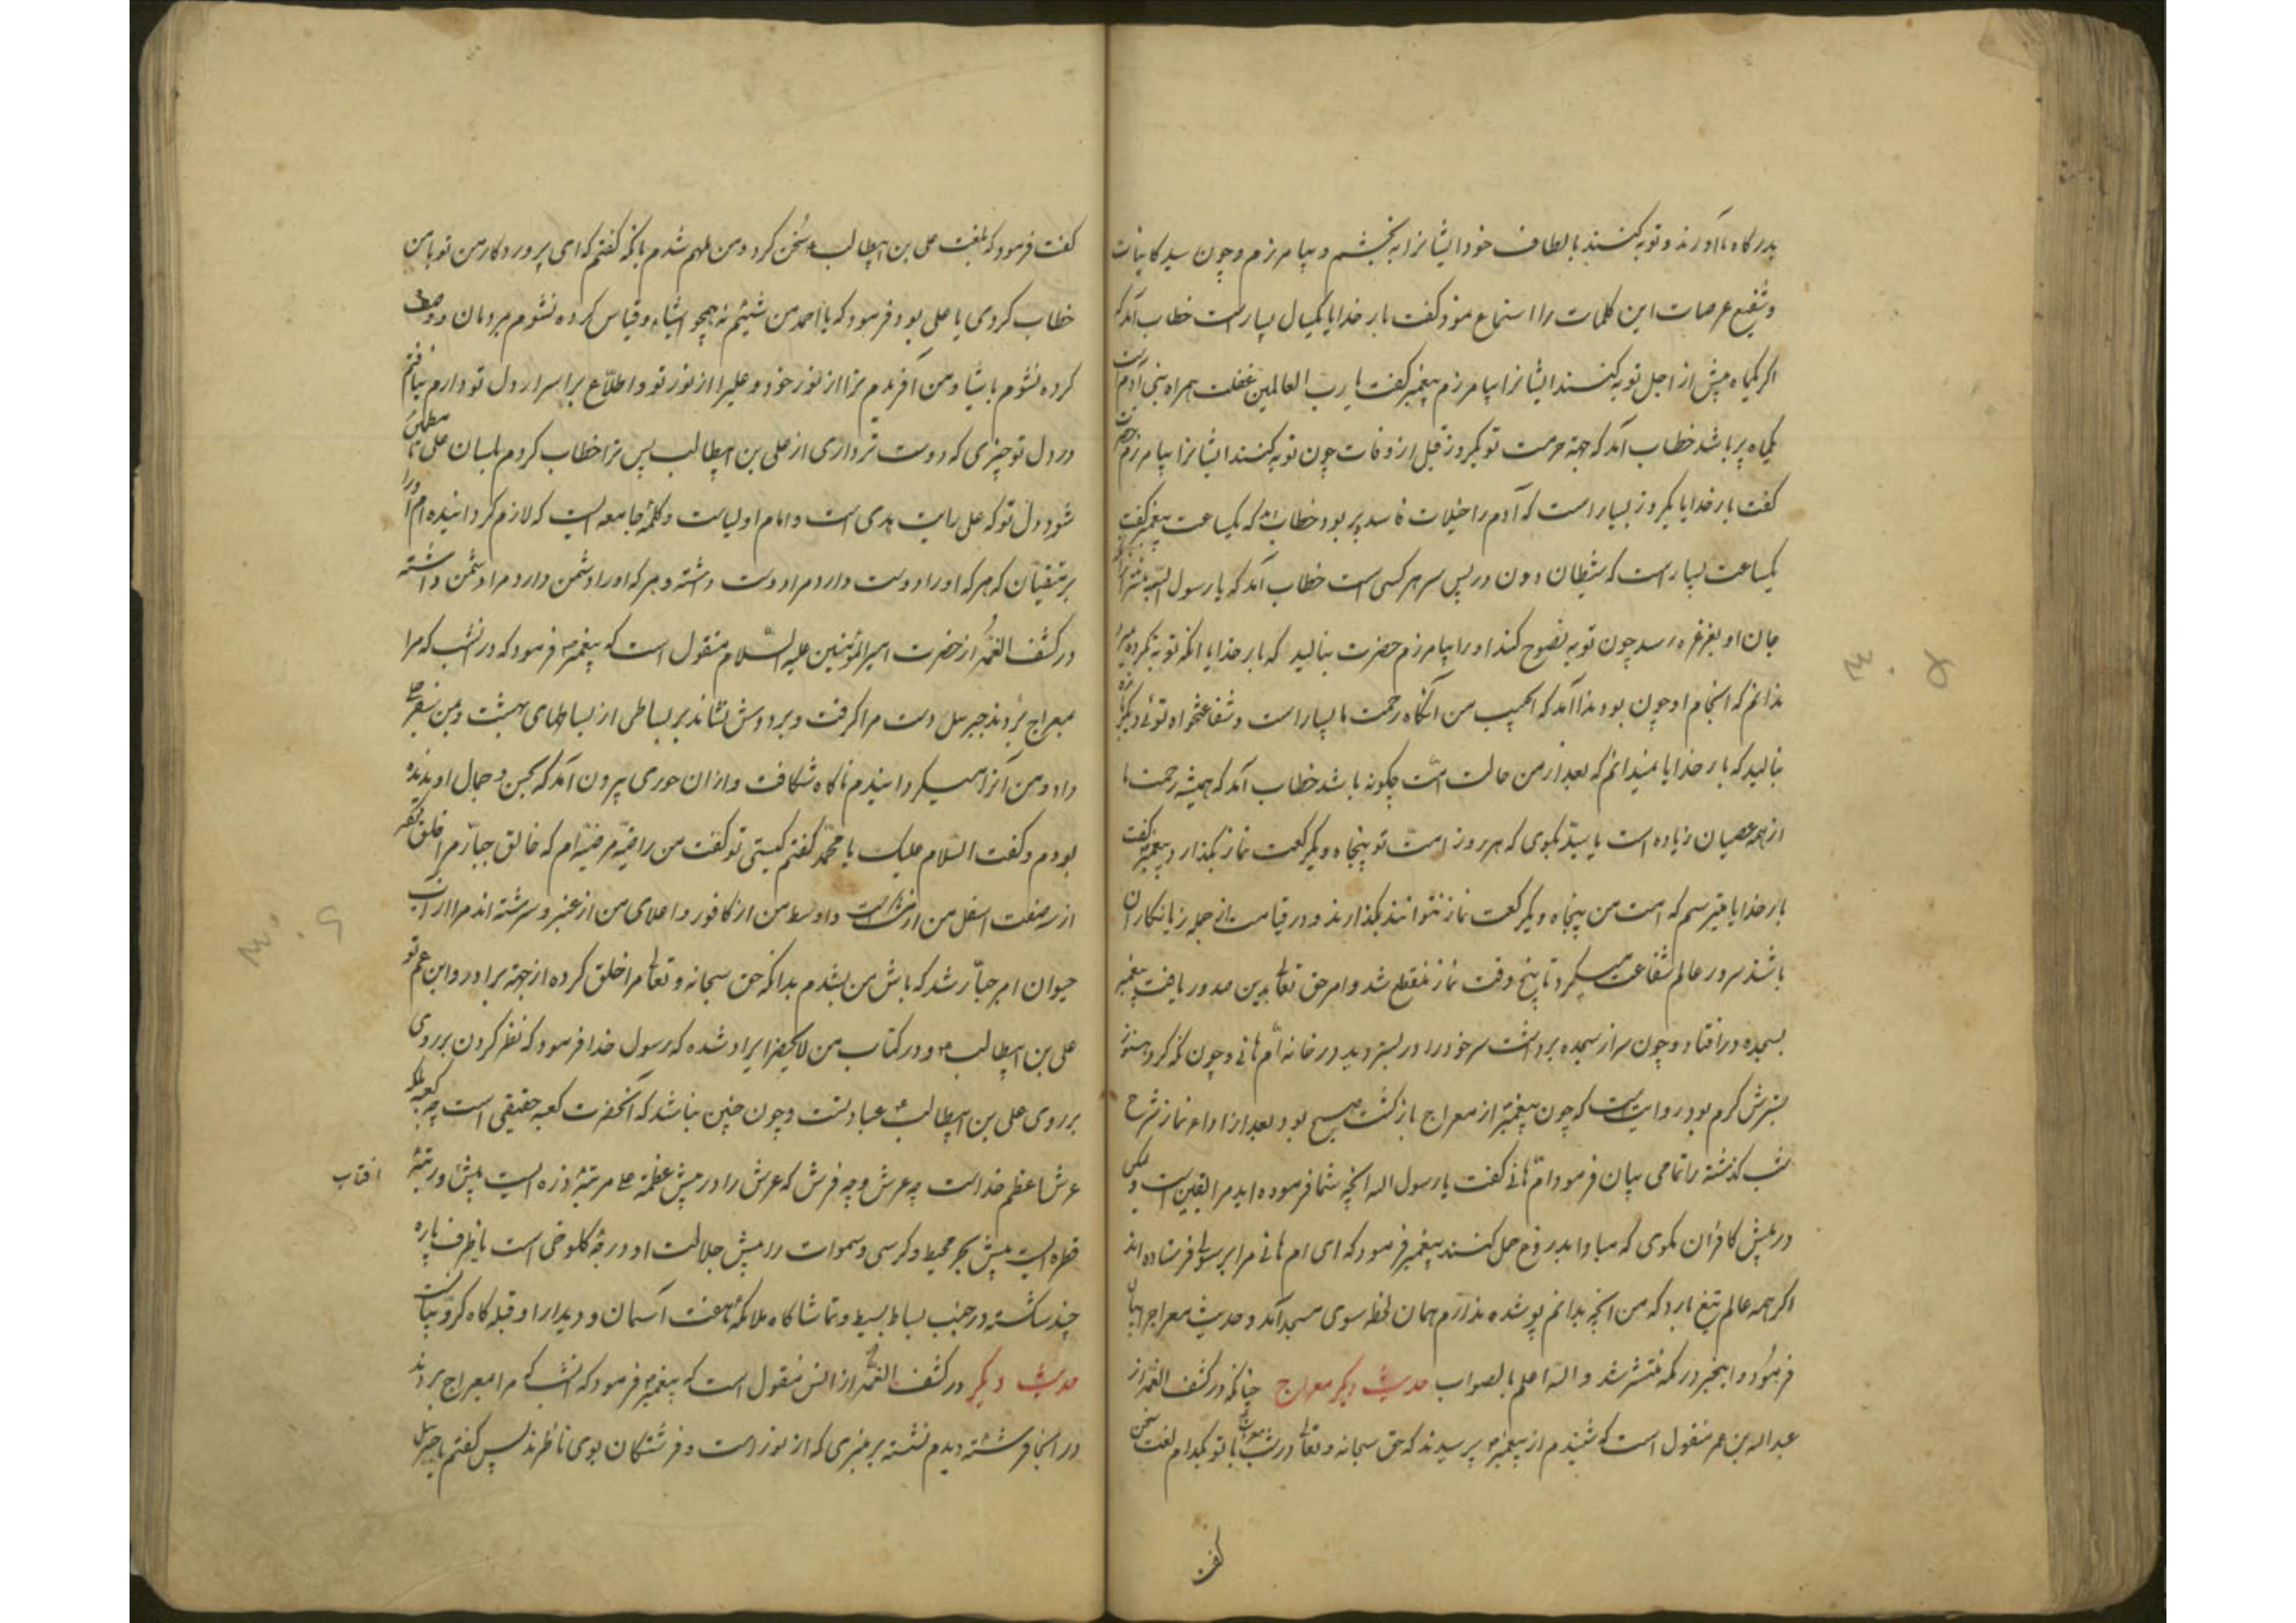 بدرگاه ما آورند و توبه کنند بالطاف خود ایشانرا به بخشم و بیامرزم و چون سید کاینات
و شفیع عرصات این کلمات را استماع نمود گفت بار خدایا یکسال بسیارست خطاب آمد که
اگر یکماه پیش از اجل توبه کنند ایشانرا بیامرزم پیغمبر گفت یا رب العالمین غفلت همراه بنی آدم است
یکماه پر باشد خطاب آمد که جهة حرمت تو یکروز قبل از وفات چون توبه کنند ایشانرا بیامرزم حضرت
گفت بار خدایا یکروز بسیار است که آدم را خیلات فاسد پر بود خطاب آمد که یکساعت پیغمبر گفت
یکساعت بسیار است که شیطان دون در پس سر هر کسی است خطاب آمد که یا رسول الله
جان او بغرغره رسد چون توبه نصوح کند او را بیامرزم حضرت بنالید که بار خدایا انکه توبه نکرده میرد
ندانم که انجام او چون بود ندا آمد که ای حبیب من آنگاه رحمت ما بسیار است و شفاعتخواه توئی دیگر
بنالید که بار خدایا نمیدانم که بعد از من حالت امت چگونه باشد خطاب آمد که همیشه رحمت ما
از همه عصیان زیاده است یا سید بگوی که هر روز امت تو پنجاه و یکرکعت نماز بگذارد پیغمبر گفت
بار خدایا میترسم که امت من پنجاه و یکرکعت نماز نتوانند بگذارند و در قیامت از جمله زیانکاران
باشند سرور عالم شفاعت میکرد تا پنج وقت نماز منقطع شد و امر حق تعالی بدین صدور یافت پیغمبر
بسجده در افتاد و چون سر از سجده برداشت سر خود را در بستر دید در خانه ام هانی و چون نگه کرد هنوز
بسترش گرم بود روایتست که چون پیغمبر از معراج بازگشت صبح بود بعد از اداء نماز شرح
شب گذشته را تمامی بیان فرمود ام هانی گفت یا رسول الله انچه شما فرموده اید مرا یقین است ولیکن
در پیش کافران مگوی که مبادا بدروغ حمل کنند پیغمبر فرمود که ای ام هانی مرا برسولی فرستاده اند
اگر همه عالم تیغ بارد که من انچه بدانم پوشده ندارم همان لحظه سوی مسجد آمد و حدیث معراج بیان
فرمود و اینخبر در مکه منتشر شد و الله اعلم بالصواب حدیث دیگر معراج چنانکه در کشف الغمه از
عبد الله بن عمر منقول است که شنیدم از پیغمبر پرسیدند که حق سبحانه و تعالی در شب معراج با تو بکدام لغت سخن
گفت
گفت فرمود که بلغت علی بن ابیطالب سخن کرد و من ملهم شدم بانکه گفتم که ای پروردگار من تو با من
خطاب کردی یا علی بود فرمود که یا احمد من شیئم نه همچو اشیاء و قیاس کرده نشوم بمردمان و وصف
کرده نشوم باشیا و من آفریدم ترا از نور خود و علیرا از نور تو و اطلاع بر اسرار دل تو دارم نیافتم
در دل تو چیزی که دوست تر داری از علی بن ابیطالب پس ترا خطاب کردم بلسان علی تا مطمئن
شود دل تو که علی رایت هدی است و امام اولیاست و کلمه جامعه ایست که لازم گردانیده ام او را
بر متقیان که هر که او را دوست دارد مرا دوست داشته و هر که او را دشمن دارد مرا دشمن داشته
در کشف الغمه از حضرت امیر المؤمنین علیه السلام منقول است که پیغمبر فرمود که در شب که مرا
بمعراج بردند جبرئیل دست مرا گرفت و بر دوش نشاند بر بساطی از بساطهای بهشت و بمن سفرجلی
داد و من آنرا همیگردانیدم ناگاه شکافت و از ان حوری بیرون آمد که بحسن و جمال او ندیده
بودم و گفت السلام علیک یا محمد گفتم کیستی تو گفت من راضیه مرضیه ام که خالق جبار مرا خلق کرده
از سه صفت اسفل من از مشکست و اوسط من از کافور و اعلای من از عنبر و سرشته اند مرا از آب
حیوان امر جبار شد که باش من بشدم بدانکه حق سبحانه و تعالی مرا خلق کرده از جهة برادر و ابن عم تو
علی بن ابیطالب و در کتاب من لا یحضر ایراد شده که رسول خدا فرمود که نظر کردن بر روی
بر روی علی بن ابیطالب عبادتست و چون چنین نباشد که آنحضرت کعبه حقیقی است چه کعبه بلکه
عرش اعظم خداست چه عرش و چه فرش که عرش را در پیش عظمة علی مرتبه ذره ایست پیش و رتبه
افتاب
قطره ایست پیش بحر محیط و کرسی و سموات را در پیش جلالت او درجه کلوخی است یا خزف پاره
چند شکسته در جنب بساط بسیط و تماشاگاه ملائکه هفت آسمان و دیدار او قبله گاه کروبیانست
حدیث دیگر در کشف الغمه از انس منقول است که پیغمبر فرمود که انشب که مرا بمعراج بردند
در انجا فرشته دیدم نشسته بر منبری که از نور است و فرشتگان بوی ناظرند پس گفتم یا جبرئیل